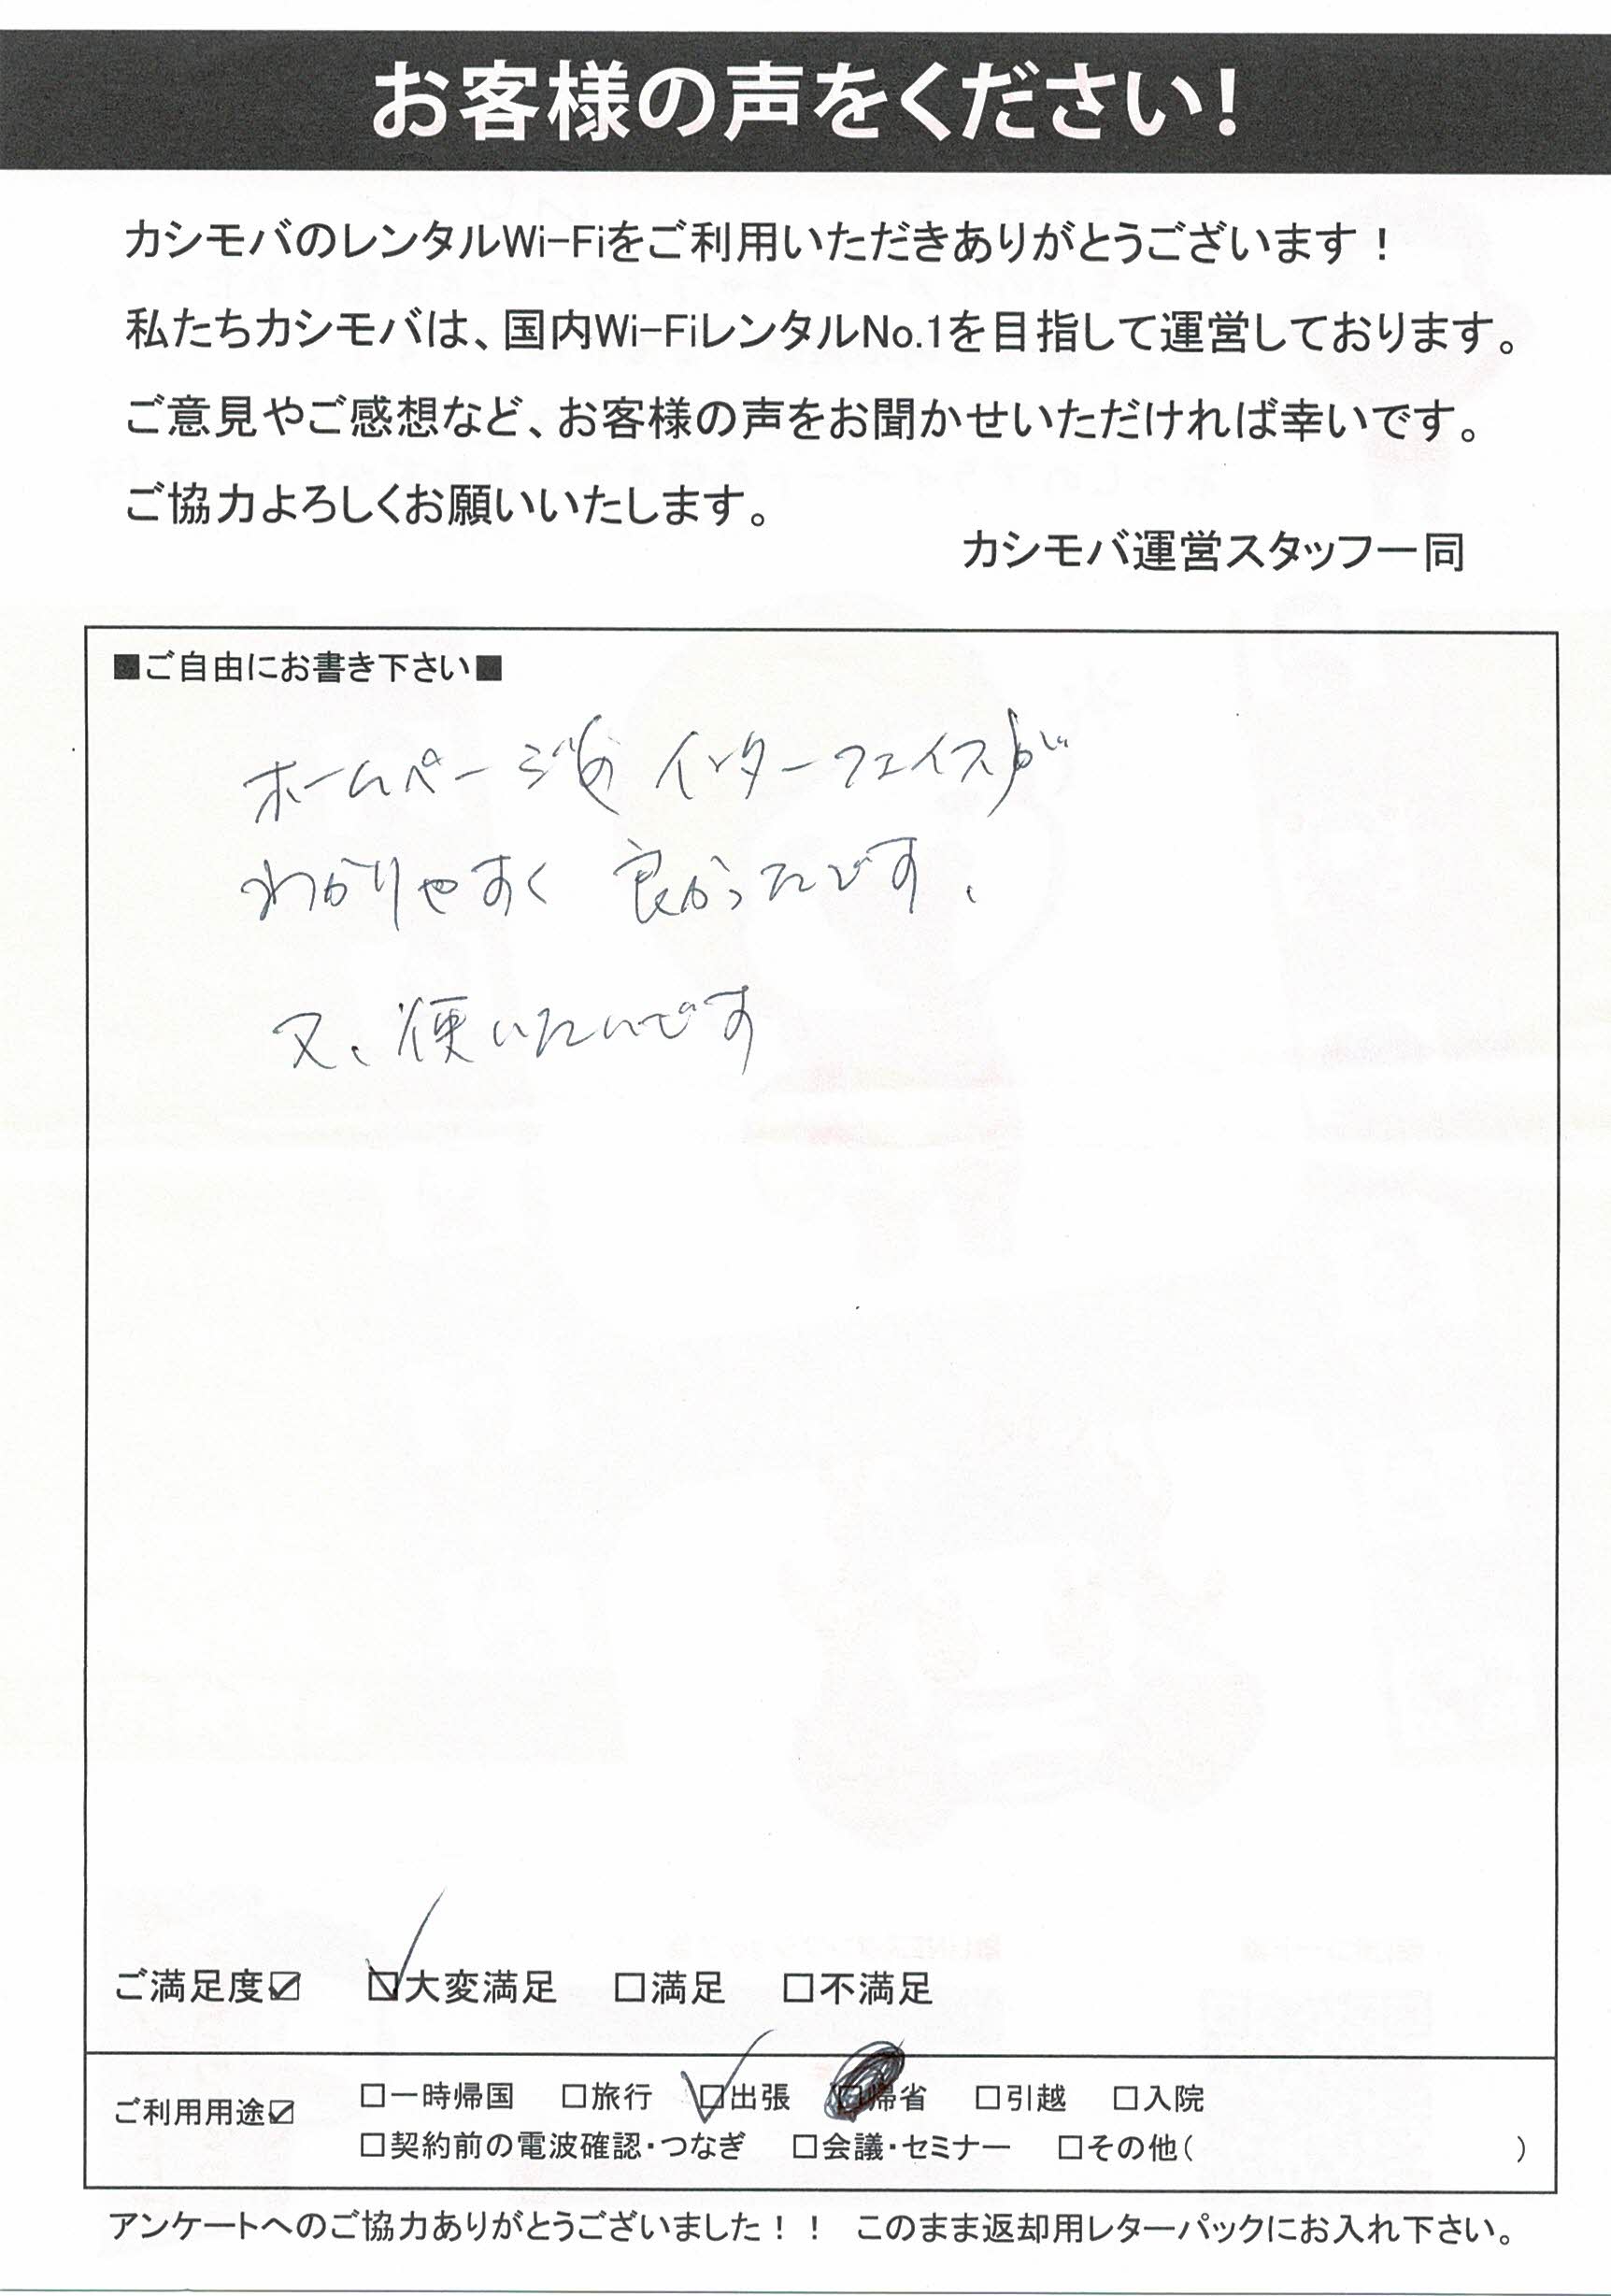 お客様の声をください!
カシモバのレンタルWi-Fiをご利用いただきありがとうございます！
私たちカシモバは、国内Wi-FiレンタルNo.1を目指して運営しております。
ご意見やご感想など、お客様の声をお聞かせいただければ幸いです。
ご協力よろしくお願いいたします。
カシモバ運営スタッフ一同
■ご自由にお書き下さい■
ホームページの インターフェイスが
わかりやすく 良かったです、
又、使いたいです
ご満足度☑ ☑大変満足 □満足 □不満足
ご利用用途☑ □一時帰国 □旅行 ☑出張 帰省 □引越 □入院
□契約前の電波確認・つなぎ □会議・セミナー □その他( )
アンケートへのご協力ありがとうございました！！ このまま返却用レターパックにお入れ下さい。